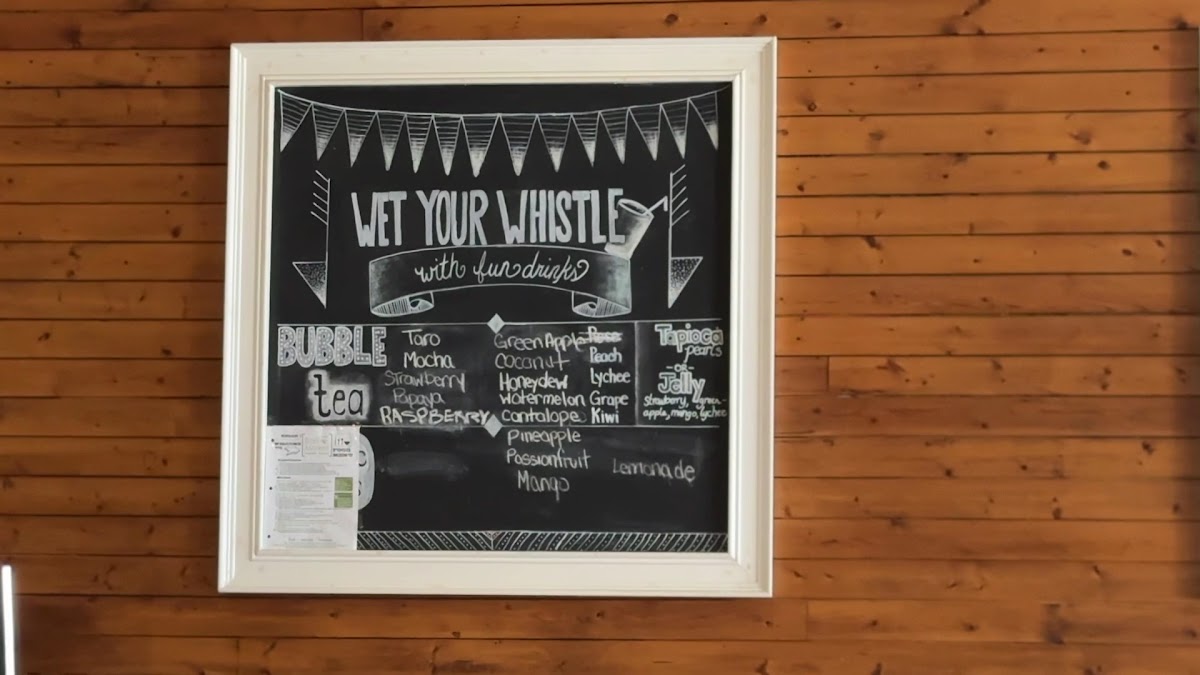 WET YOUR WHISTLE
with fun drinks
BUBBLE
tea
Taro
Mocha
Strawberry
Papaya
RASPBERRY
Green Apple
Coconut
Honeydew
Watermelon
Cantalope
Pineapple
Passionfruit
Mango
Rose
Peach
Lychee
Grape
Kiwi
Lemonade
Tapioca
pearls
-OR-
Jelly
strawberry, green-
apple, mango, lychee